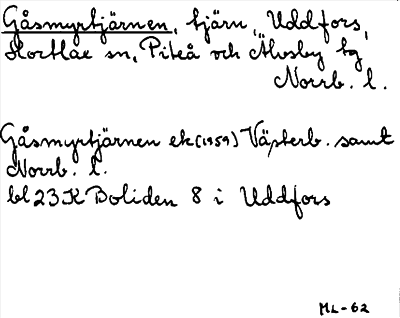 Gåsmyrtjärnen, tjärn, Uddfors,
Hortlax sn, Piteå och Älvsby tg
Norrb. l.
Gåsmyrtjärnen ek (1959) Västerb. samt
Norrb. l.
bl 23 K Boliden 8 i Uddfors
ML-62